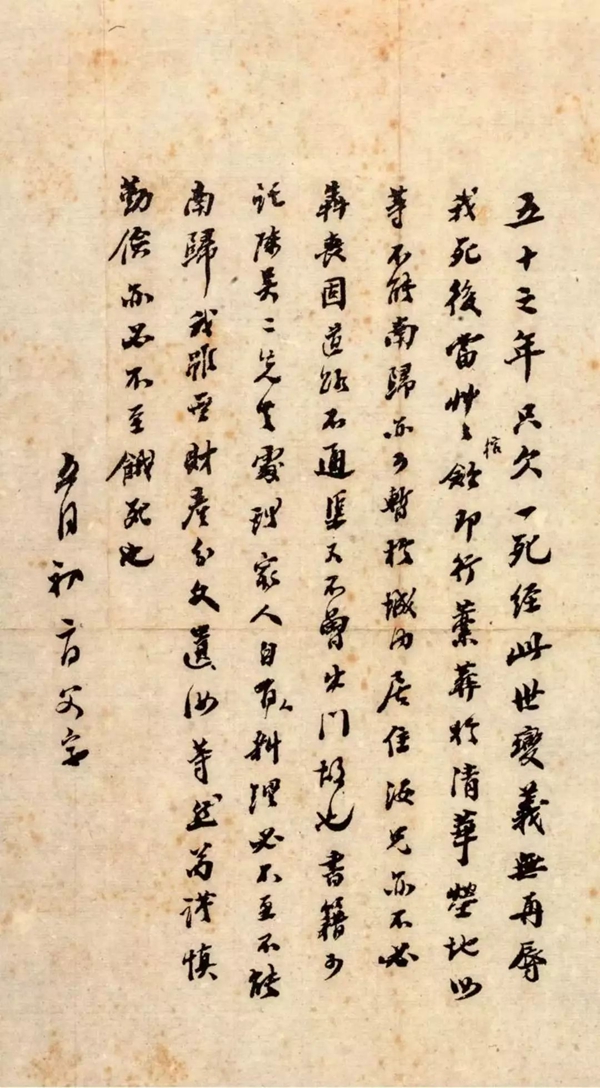 五十之年只欠一死經此世變義無再辱
我死後當艸〻棺殮即行藁葬於清華塋地汝
等不能南歸亦可暫於城內居住汝兄亦不必
奔喪因道路不通渠又不曾出門故也書籍可
託陳吳二先生處理家人自有人料理必不至不能
南歸我雖無財產分文遺汝等然苟謹慎
勤儉亦必不至餓死也
五月初二日父字